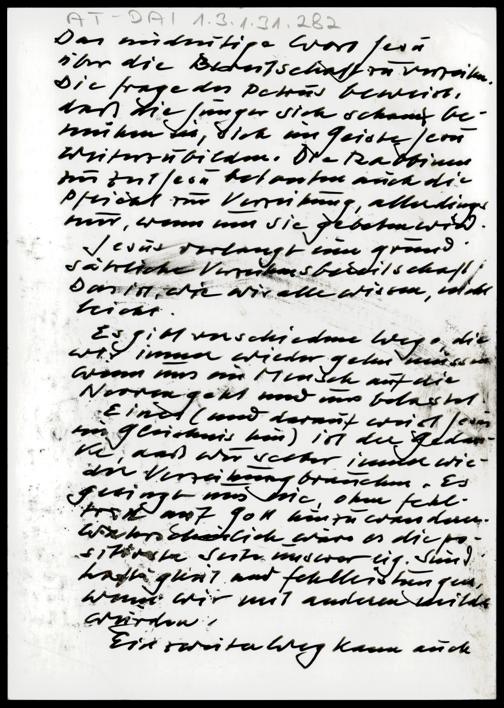 AT-DAI 1.3.1.31.282
Das eindeutige Wort Jesu
über die Bereitschaft zu verzeihn.
Die Frage des Petrus beweist,
daß die Jünger sich schon be-
mühen, sich im Geiste Jesu
weiterzubilden. Die Rabbinen
zur Zeit Jesu betonten auch die
Pflicht zur Verzeihung, allerdings
nur, wenn um sie gebeten wird.
Jesus verlangt eine grund-
sätzliche Verzeihensbereitschaft,
Das ist, wie wir alle wissen, nicht
leicht.
Es gibt verschiedene Wege, die
wir immer wieder gehen müssen
wenn uns ein Mensch auf die
Nerven geht und uns belastet.
Einer (und darauf weist Jesu
im Gleichnis hin) ist der Gedan-
ke, daß wir selber immer wie-
der Verzeihung brauchen. Es
gelingt uns nie, ohne Fehl-
tritt auf Gott hinzuwandern.
Wahrscheinlich wäre es die po-
sitivste Seite unserer eig. Sünd-
haftigkeit und Fehlleistungen,
wenn wir mit anderen milde
würden!
Ein zweiter Weg kann auch